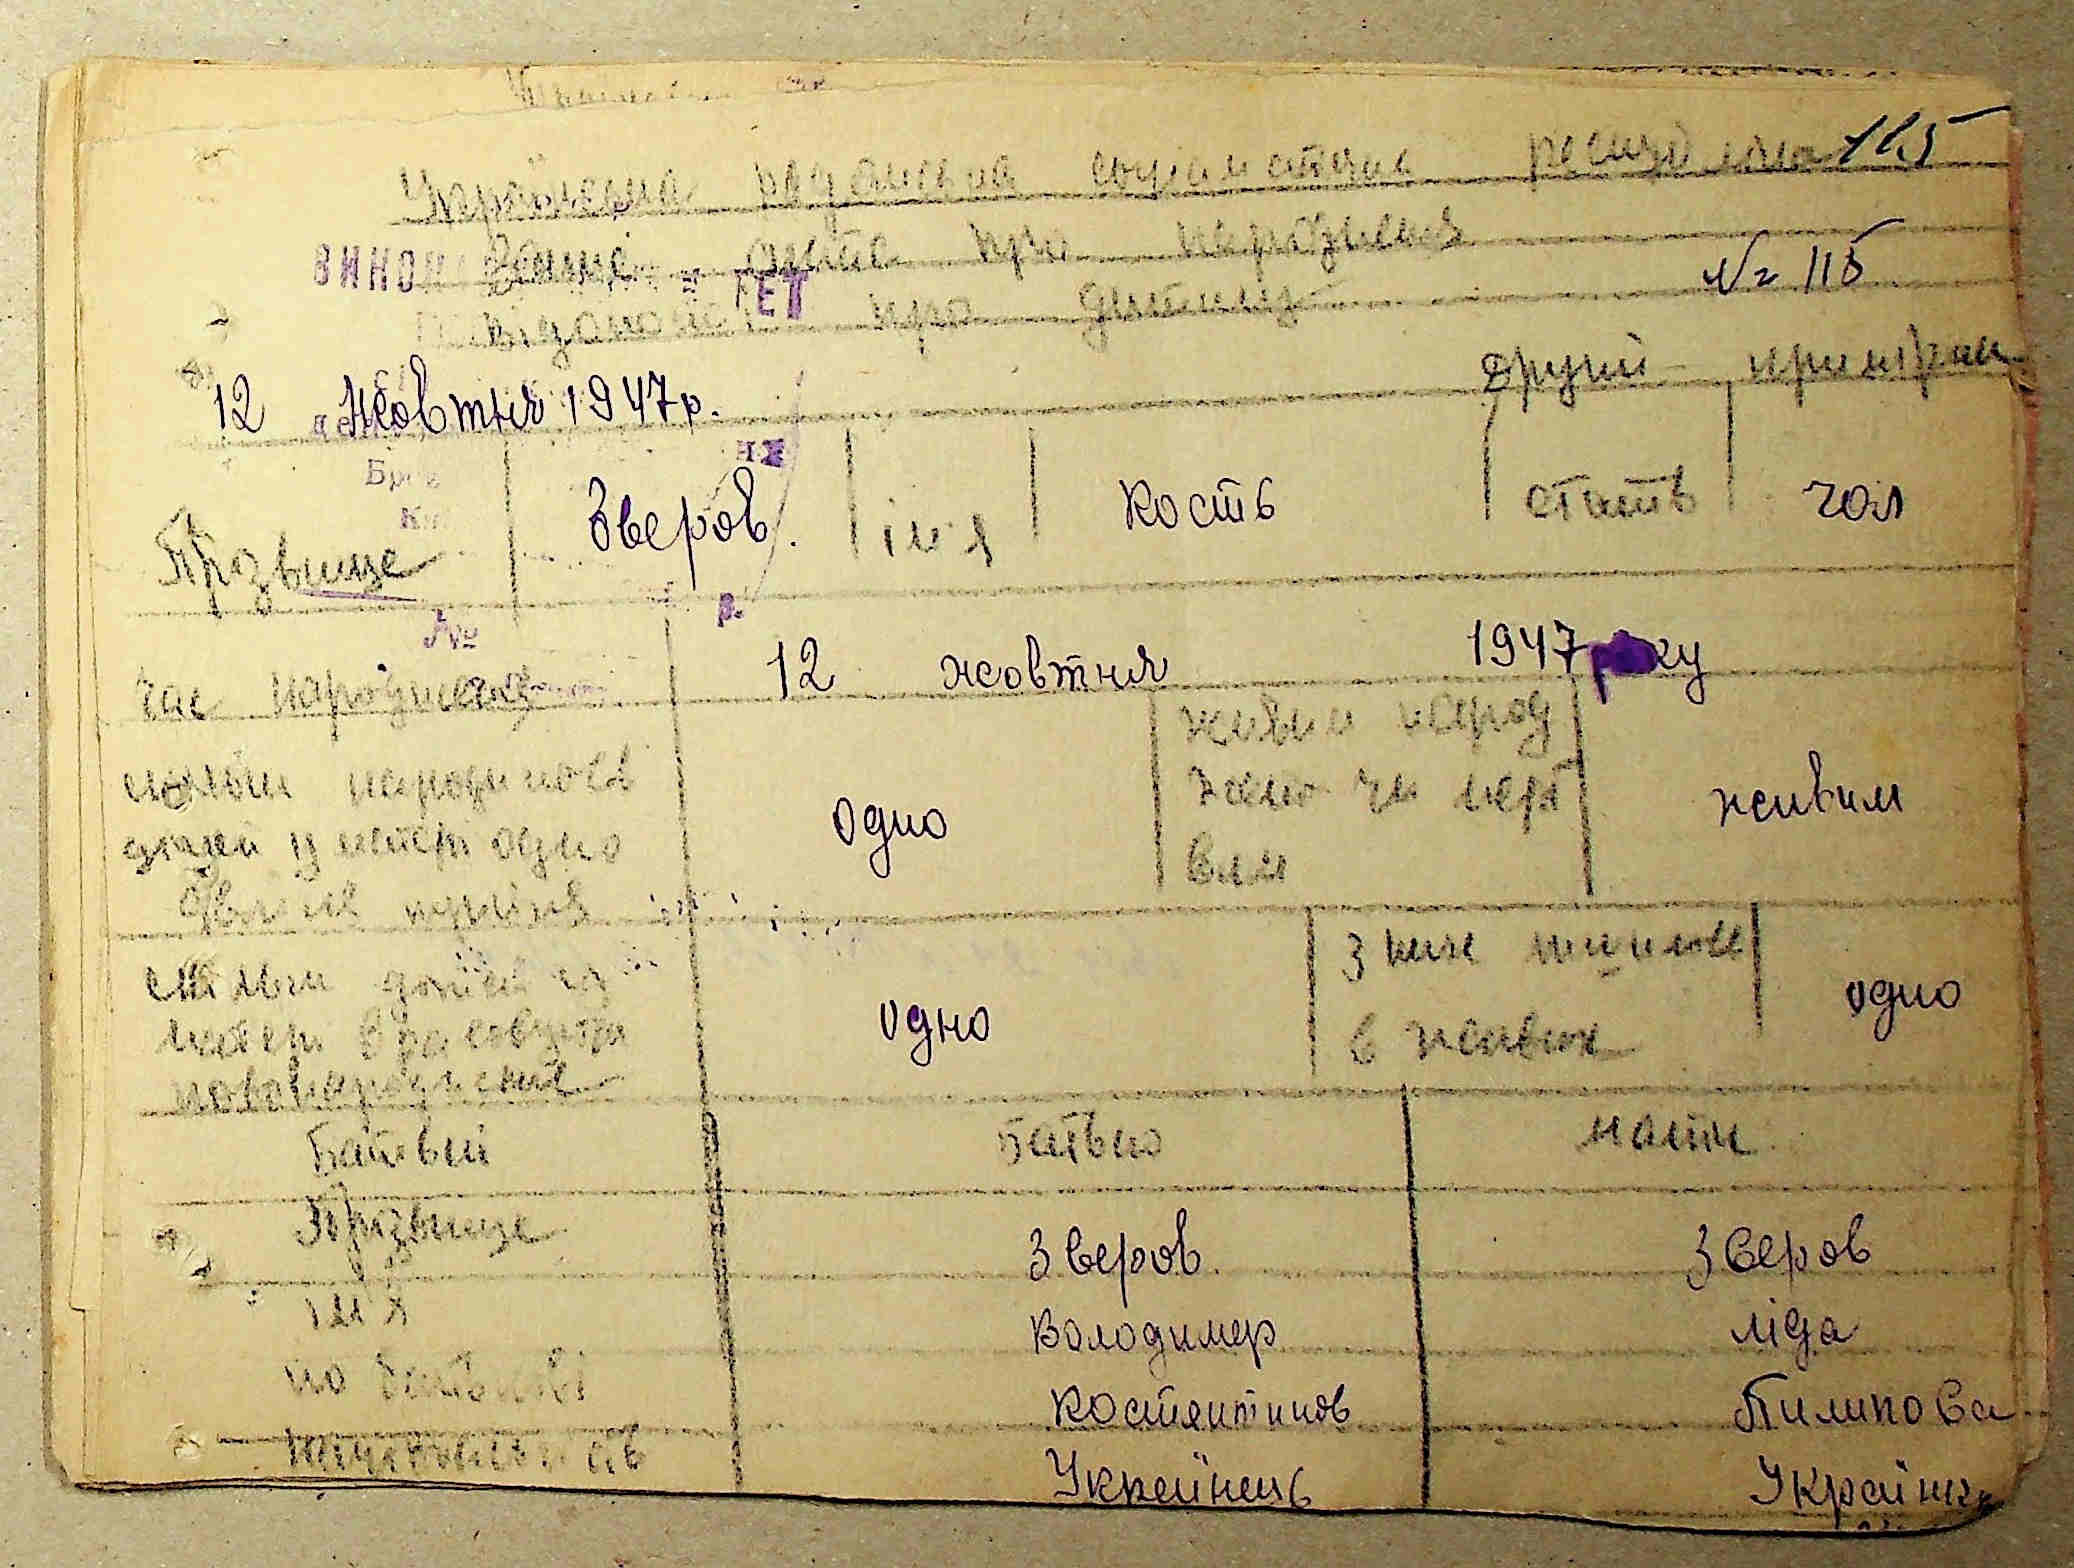 Українська радянська соціалістична республіка 115
Запис акта про народження
ВИКОН ЕТ
Відомості про дитину № 115
12 Жовтня 1947 р. другий примірник
Прізвище Зверов. ім'я Кость стать чол
№ р.
час народження 12 жовтня 1947 року
скільки народилось живим народ
дітей у матері одно одно жено чи мерт живим
двійня трійня вим
скільки дітей у з них лишилось
матері враховуючи одно в живих одно
новонароджених
Батьки Батько мати
Прізвище Зверов Зверов
ім'я Володимер Ліда
по батькові Костянтинов Пилипова
національність Украйнець Украйнка